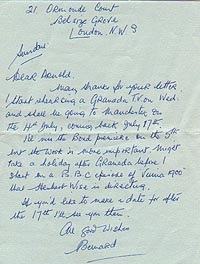 21. Ormonde Court
Belsize Grove
London. N.W 3
Sunday
Dear Arnold.
Many thanks for your letter
I start rehearsing a Granada T.V. on Wed.
and shall be going to Manchester on
the 14th July, coming back July 17th.
I'll miss the Bond première on the 5th
but the work is more important. Might
take a holiday after Granada before I
start on a B.B.C episode of Vienna 1900
that Herbert Wise is directing.
If you'd like to make a date for after
the 17th I'll see you then.
All good wishes
Bernard